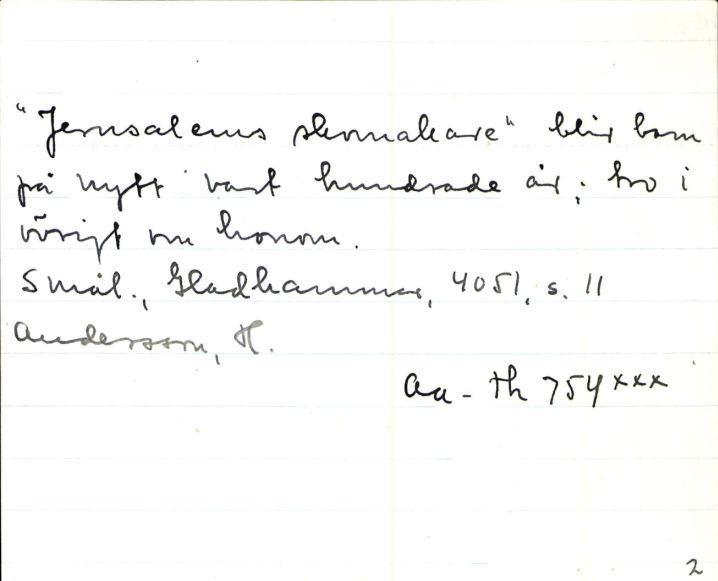 "Jerusalems skomakare" blir barn
på nytt vart hundrade år; tro i
övrigt om honom.
Smål., Gladhammar, 4051, s. 11
Andersson, H.
Aa - Th 754 xxx
2